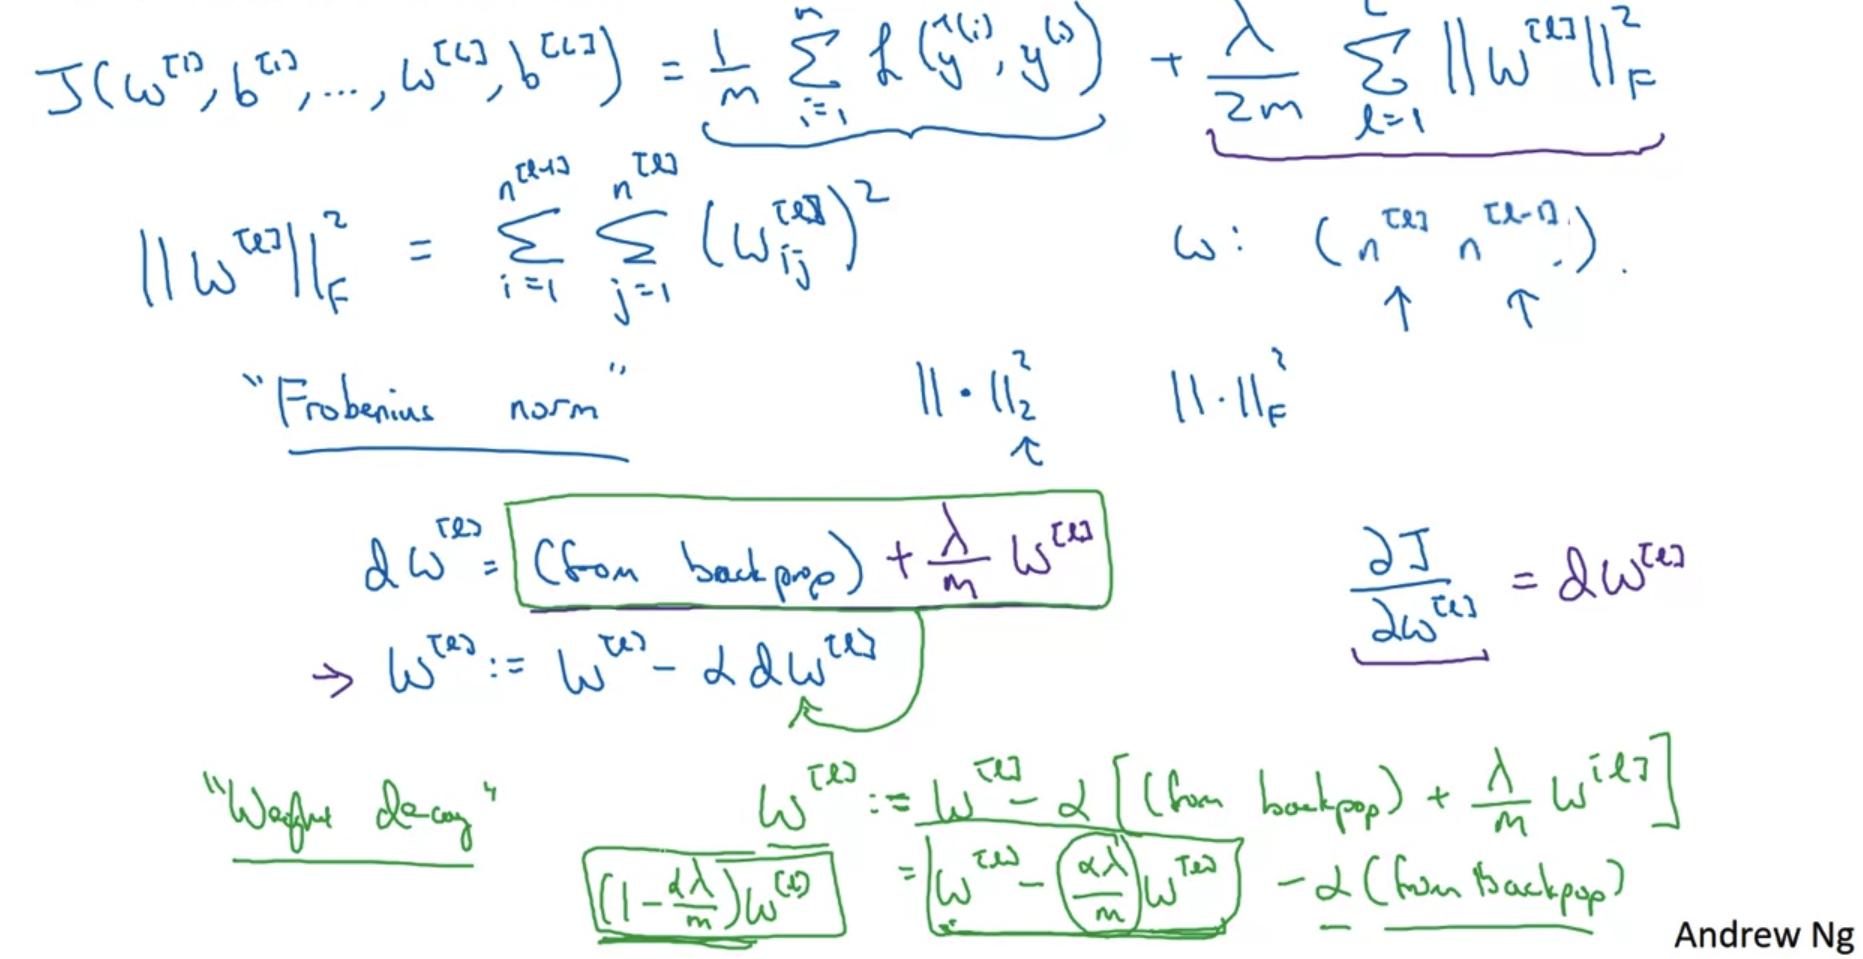 J(w^[1], b^[1], ..., w^[L], b^[L]) = 1/m Σ_{i=1}^{m} L(ŷ^(i), y^(i)) + λ/2m Σ_{l=1}^{L} ||w^[l]||_F^2
||w^[l]||_F^2 = Σ_{i=1}^{n^[l-1]} Σ_{j=1}^{n^[l]} (w_ij^[l])^2    w: (n^[l] n^[l-1]).
↑ ↑
"Frobenius norm"    ||·||_2^2    ||·||_F^2
↑
dw^[l] = (from backprop) + λ/m w^[l]    ∂J/∂w^[l] = dw^[l]
→ w^[l] := w^[l] - α dw^[l]
"Weight decay"    w^[l] := w^[l] - α [(from backpop) + λ/m w^[l]]
(1 - αλ/m) w^[l]    = w^[l] - αλ/m w^[l] - α (from backpop)
Andrew Ng